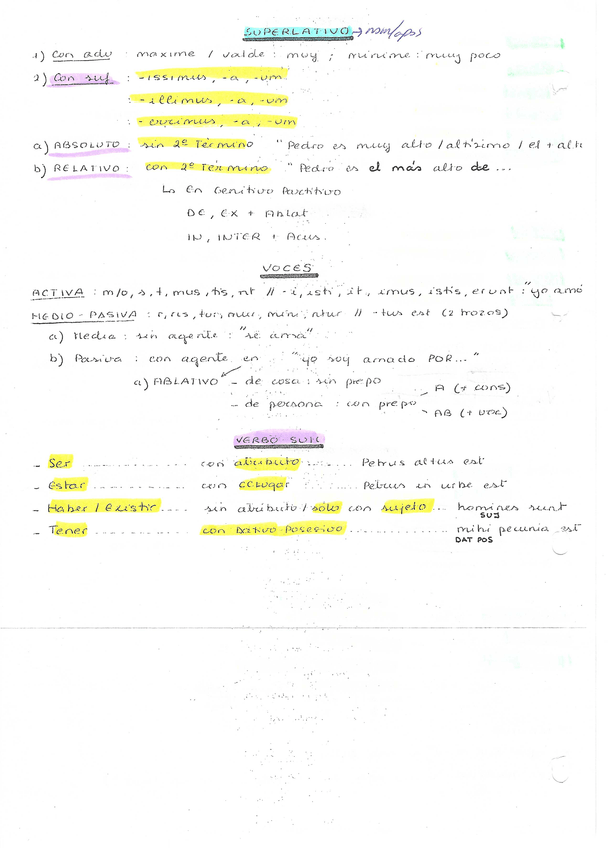 SUPERLATIVO → nom/apos
1) Con adv : maxime / valde : muy ; minime : muy poco
2) Con suf : -issimus, -a, -um
: -illimus, -a, -um
: -errimus, -a, -um
a) ABSOLUTO : sin 2º Término " Pedro es muy alto / altísimo / el + alt
b) RELATIVO : con 2º Término " Pedro es el más alto de ...
↳ En Genitivo Partitivo
DE, EX + Ablat
IN, INTER + Acus.
VOCES
ACTIVA : m/o, s, t, mus, tis, nt // -i, isti, it, imus, istis, erunt : "yo amo
MEDIO-PASIVA : r, ris, tur, mur, mini, ntur // -tus est (2 trozos)
a) Media : sin agente : "se ama"
b) Pasiva : con agente en "yo soy amado POR..."
a) ABLATIVO - de cosa : sin prepo
- de persona : con prepo
A (+ cons)
AB (+ voc)
VERBO SUM
- Ser ........ con atributo ........ Petrus altus est
- Estar ........ con CCLugar ........ Petrus in urbe est
- Haber / Existir .... sin atributo / sólo con sujeto ... homines sunt
SUJ
- Tener ........ con Dativo-Posesivo ........ mihi pecunia est
DAT POS